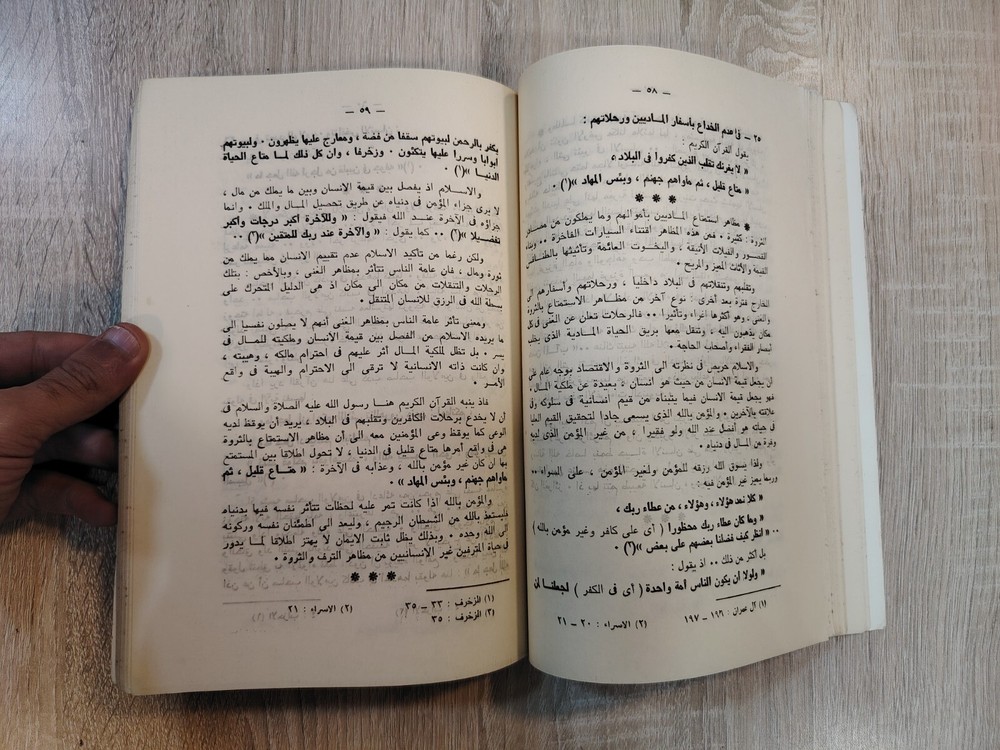 — ٥٨ —
٢٥ — عدم الخداع بأسفار الماديين ورحلاتهم :
يقول القرآن الكريم :
« لا يغرنك تقلب الذين كفروا فى البلاد ٥
« متاع قليل ، ثم مأواهم جهنم ، وبئس المهاد »(١) .
* * *
* مظاهر استمتاع الماديين بأموالهم وما يملكون من
الثروة : كثيرة . فمن هذه المظاهر اقتناء السيارات الفاخرة ..
القصور والفيلات الأنيقة ، واليخوت العائمة وتأثيثها بالطنافس
القيمة والأثاث المميز والمريح .
وتقلبهم وتنقلاتهم فى البلاد داخليا ، ورحلاتهم وأسفارهم الى
الخارج فترة بعد أخرى : نوع آخر من مظاهر الاستمتاع بالثروة
والغنى ، وهو أكثرها اغراء وتأثيرا .. فالرحلات تعلن عن الغنى فى كل
مكان يذهبون اليه ، وتنقل معها بريق الحياة المادية الذى يخلب
أبصار الفقراء وأصحاب الحاجة .
والاسلام حريص فى نظرته الى الثروة والاقتصاد بوجه عام على
أن يجعل قيمة الانسان من حيث هو انسان ، بعيدة عن ملكية المال .
فهو يجعل قيمة الانسان فيما يتبناه من قيم انسانية فى سلوكه وفى
علاقته بالآخرين . والمؤمن بالله الذى يسعى جادا لتحقيق القيم العليا
فى حياته هو أفضل عند الله ولو فقيرا ، من غير المؤمن الذى لديه
وفرة من المال فى دنياه .
ولذا يسوق الله رزقه للمؤمن ولغير المؤمن ، على السواء ..
وربما يميز غير المؤمن فيه :
« كلا نمد هؤلاء ، وهؤلاء ، من عطاء ربك ،
« وما كان عطاء ربك محظورا ( أى على كافر وغير مؤمن بالله ) ..
« انظر كيف فضلنا بعضهم على بعض »(٢) .
بل أكثر من ذلك .. اذ يقول :
« ولولا أن يكون الناس أمة واحدة ( أى فى الكفر ) لجعلنا لمن
(١) آل عمران : ١٩٦ — ١٩٧
(٢) الاسراء : ٢٠ — ٢١
— ٥٩ —
يكفر بالرحمن لبيوتهم سقفا من فضة ، ومعارج عليها يظهرون . ولبيوتهم
أبوابا وسررا عليها يتكئون . وزخرفا ، وان كل ذلك لما متاع الحياة
الدنيا »(١) .
والاسلام اذ يفصل بين قيمة الانسان وبين ما يملك من مال ،
لا يرى جزاء المؤمن فى دنياه عن طريق تحصيل المال والملك . وانما
جزاؤه فى الآخرة عند الله فيقول : « وللآخرة أكبر درجات وأكبر
تفضيلا »(٢) .. كما يقول : « والآخرة عند ربك للمتقين »(٣) ..
ولكن رغما من تأكيد الاسلام عدم تقييم الانسان مما يملك من
ثروة ومال ، فان عامة الناس تتأثر بمظاهر الغنى ، وبالأخص : بتلك
الرحلات والتنقلات من مكان الى مكان اذ هى الدليل المتحرك على
بسطة الله فى الرزق للانسان المتنقل .
ومعنى تأثر عامة الناس بمظاهر الغنى أنهم لا يصلون نفسيا الى
ما يريده الاسلام من الفصل بين قيمة الانسان وملكيته للمال فى
يسر . بل تظل لملكية المال أثر عليهم فى احترام مالكه ، وهيبته ،
وان كانت ذاته الانسانية لا ترقى الى الاحترام والهيبة فى واقع
الأمر .
فاذ ينبه القرآن الكريم هنا رسول الله عليه الصلاة والسلام فى
أن لا يخدع برحلات الكافرين وتقلبهم فى البلاد ، يريد أن يوقظ لديه
الوعى كما يوقظ وعى المؤمنين معه الى أن مظاهر الاستمتاع بالثروة
هى فى واقع أمرها متاع قليل فى الدنيا ، لا تحول اطلاقا بين المستمتع
بها ان كان غير مؤمن بالله ، وعذابه فى الآخرة : « متاع قليل ، ثم
مأواهم جهنم ، وبئس المهاد » .
والمؤمن بالله اذا كانت تمر عليه لحظات تتأثر نفسه فيها بدنياه
فليستعذ بالله من الشيطان الرجيم ، وليعد الى اطمئنان نفسه وركونه
الى الله وحده . وبذلك يظل ثابت الايمان لا يهتز اطلاقا لما يدور
فى حياة المترفين غير الانسانيين من مظاهر الترف والثروة .
* * *
(١) الزخرف : ٣٣ — ٣٥
(٢) الاسراء : ٢١
(٣) الزخرف : ٣٥